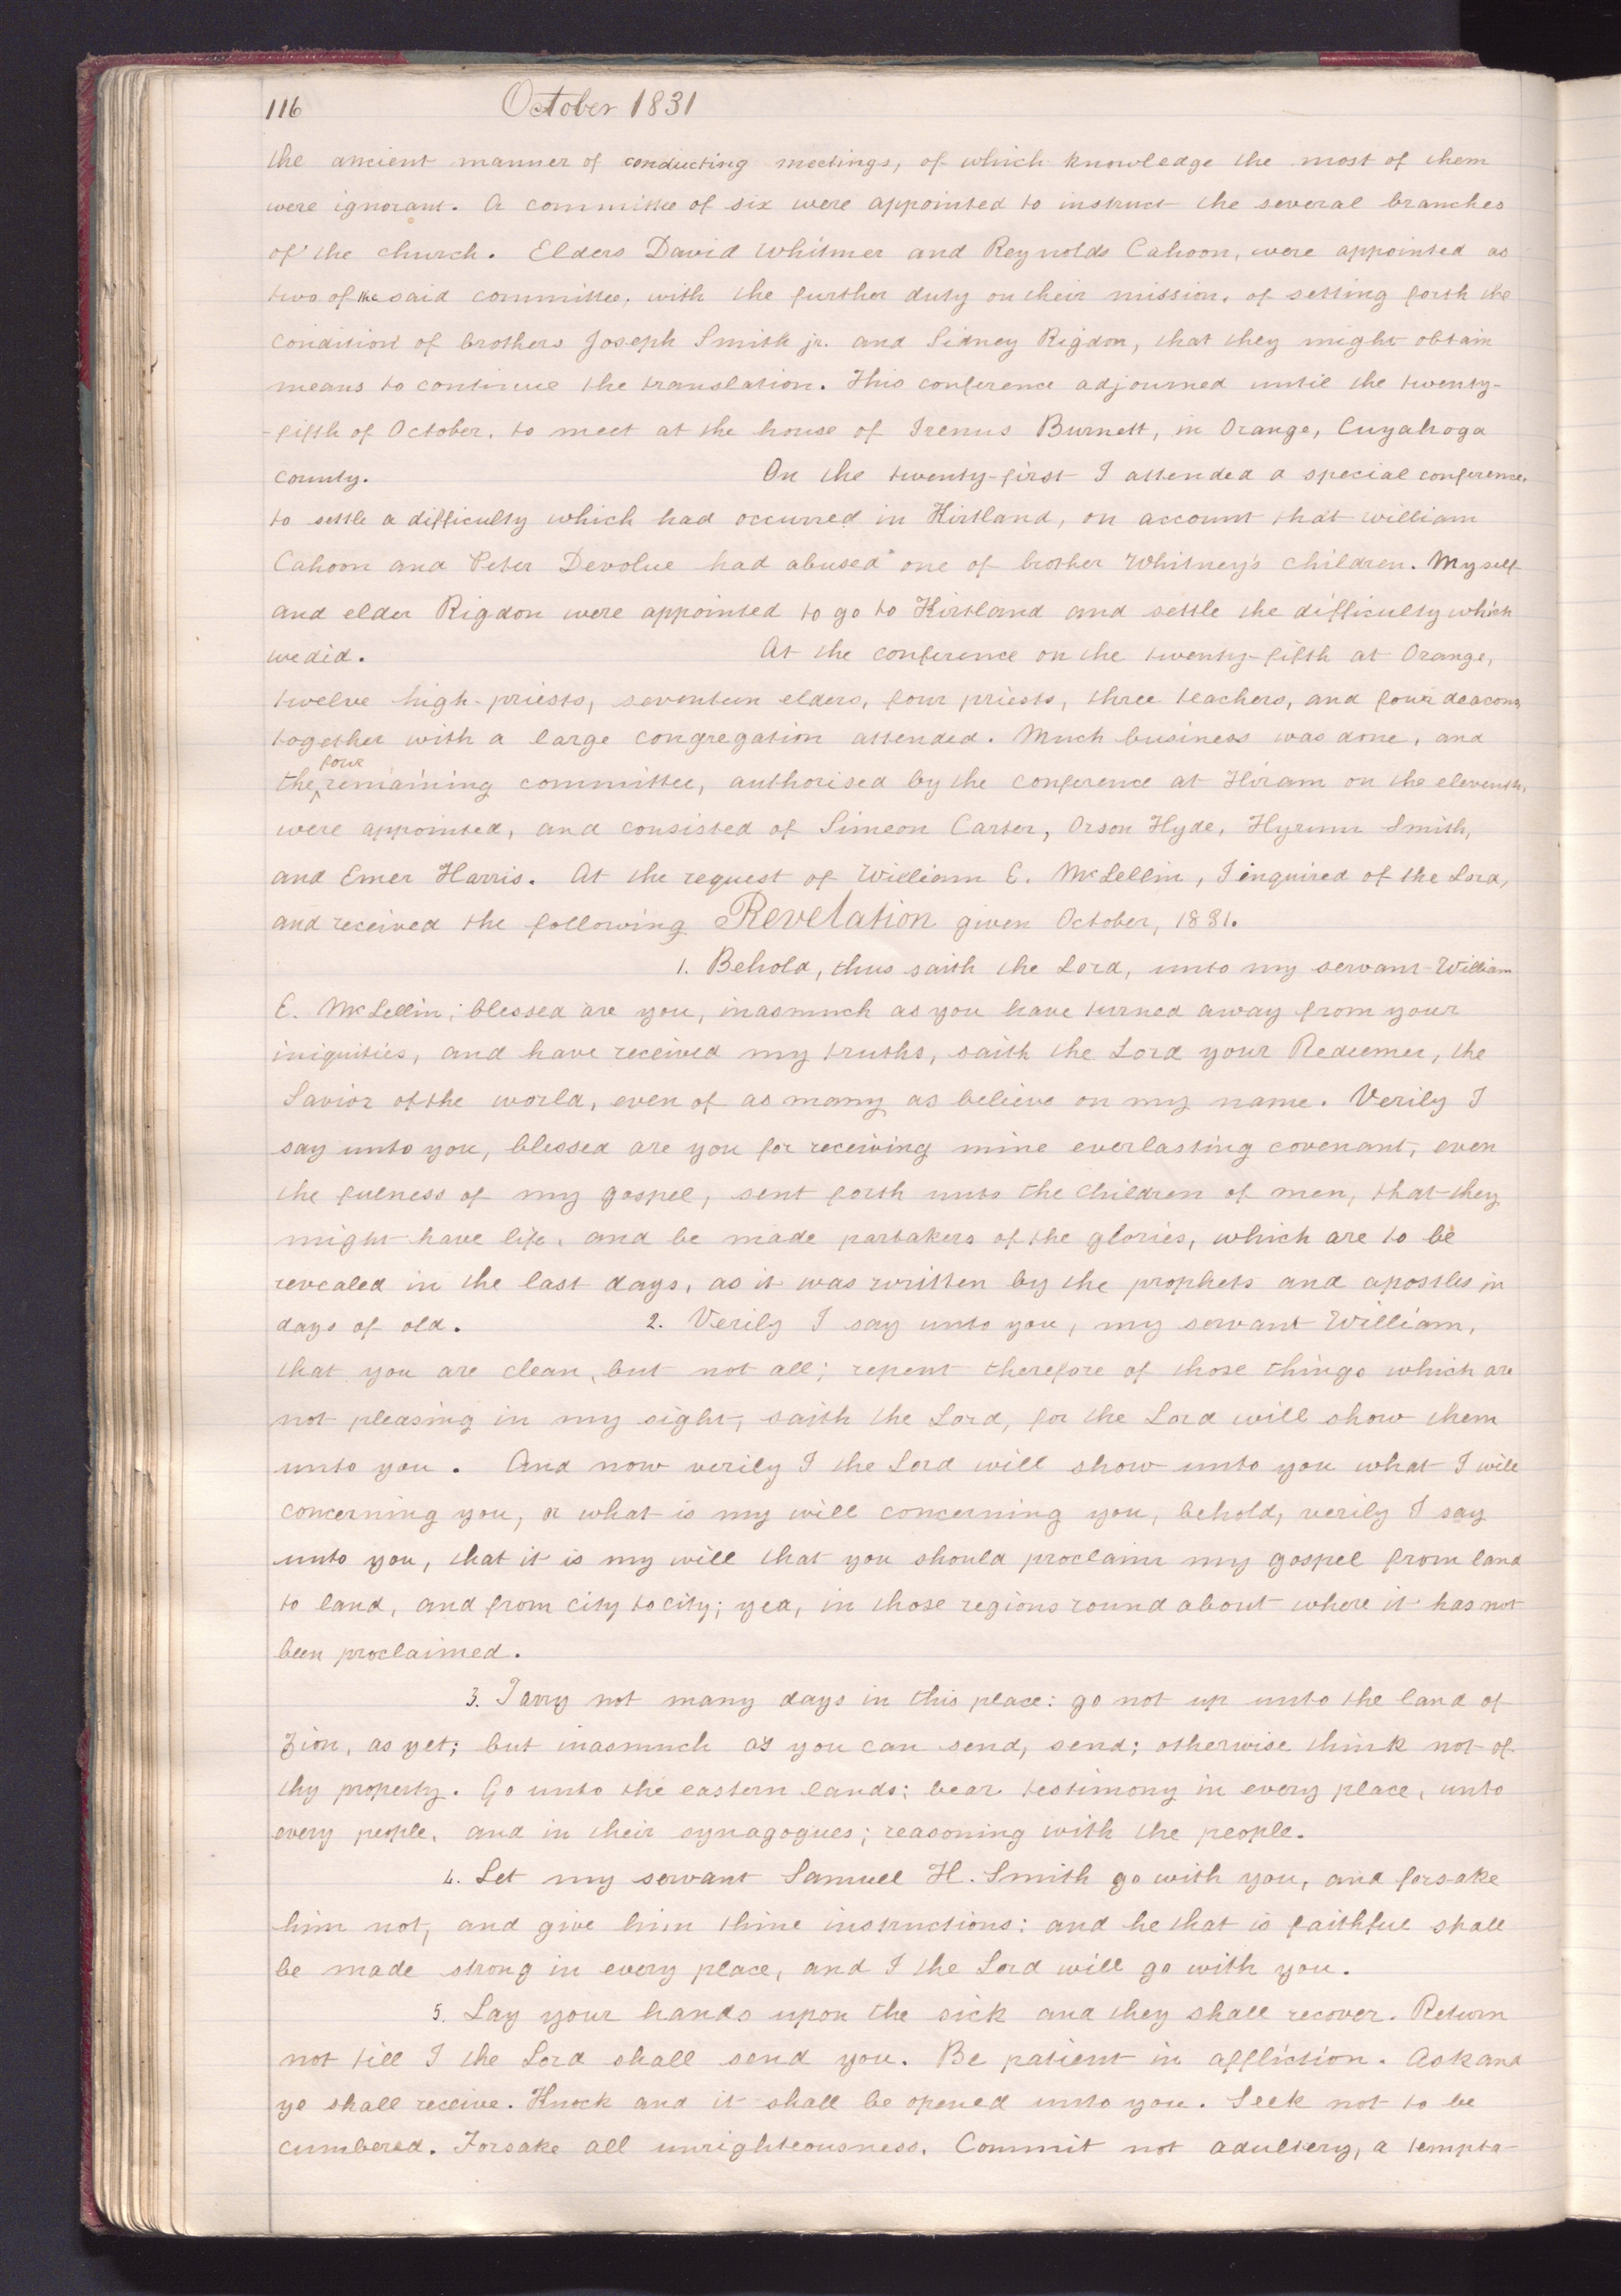 116 October 1831
the ancient manner of conducting meetings, of which knowledge the most of them
were ignorant. A committee of six were appointed to instruct the several branches
of the church. Elders David Whitmer and Reynolds Cahoon, were appointed as
two of the said committee, with the further duty on their mission, of setting forth the
condition of brothers Joseph Smith jr. and Sidney Rigdon, that they might obtain
means to continue the translation. This conference adjourned until the twenty-
-fifth of October, to meet at the house of Irenus Burnett, in Orange, Cuyahoga
county. On the twenty-first I attended a special conference,
to settle a difficulty which had occurred in Kirtland, on account that william
Cahoon and Peter Devolue had abused one of brother Whitney's children. Myself
and elder Rigdon were appointed to go to Kirtland and settle the difficulty which
we did. At the conference on the twenty-fifth at Orange,
twelve high-priests, seventeen elders, four priests, three teachers, and four deacons,
together with a large congregation attended. Much business was done, and
four
the remaining committee, authorised by the conference at Hiram on the eleventh,
were appointed, and consisted of Simeon Carter, Orson Hyde, Hyrum Smith,
and Emer Harris. At the request of William E. McLellin, I inquired of the Lord,
and received the following Revelation given October, 1831.
1. Behold, thus saith the Lord, unto my servant William
E. McLellin; blessed are you, inasmuch as you have turned away from your
iniquities, and have received my truths, saith the Lord your Redeemer, the
Savior of the world, even of as many as believe on my name. Verily I
say unto you, blessed are you for receiving mine everlasting covenant, even
the fulness of my gospel, sent forth unto the children of men, that they
might have life, and be made partakers of the glories, which are to be
revealed in the last days, as it was written by the prophets and apostles in
days of old. 2. Verily I say unto you, my servant William,
that you are clean, but not all; repent therefore of those things which are
not pleasing in my sight, saith the Lord, for the Lord will show them
unto you. And now verily I the Lord will show unto you what I will
concerning you, or what is my will concerning you, behold, verily I say
unto you, that it is my will that you should proclaim my gospel from land
to land, and from city to city; yea, in those regions round about where it has not
been proclaimed.
3. Tarry not many days in this place: go not up unto the land of
Zion, as yet; but inasmuch as you can send, send; otherwise think not of
thy property. Go unto the eastern lands; bear testimony in every place, unto
every people, and in their synagogues; reasoning with the people.
4. Let my servant Samuel H. Smith go with you, and forsake
him not, and give him thine instructions: and he that is faithful shall
be made strong in every place, and I the Lord will go with you.
5. Lay your hands upon the sick and they shall recover. Return
not till I the Lord shall send you. Be patient in affliction. Ask and
ye shall receive. Knock and it shall be opened unto you. Seek not to be
cumbered. Forsake all unrighteousness. Commit not adultery, a tempta-